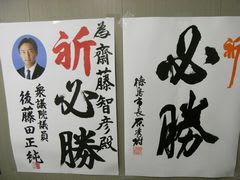 為 齋藤智彦殿
祈
必勝
衆議院議員
後藤田正純
必勝
徳島市長 原秀樹